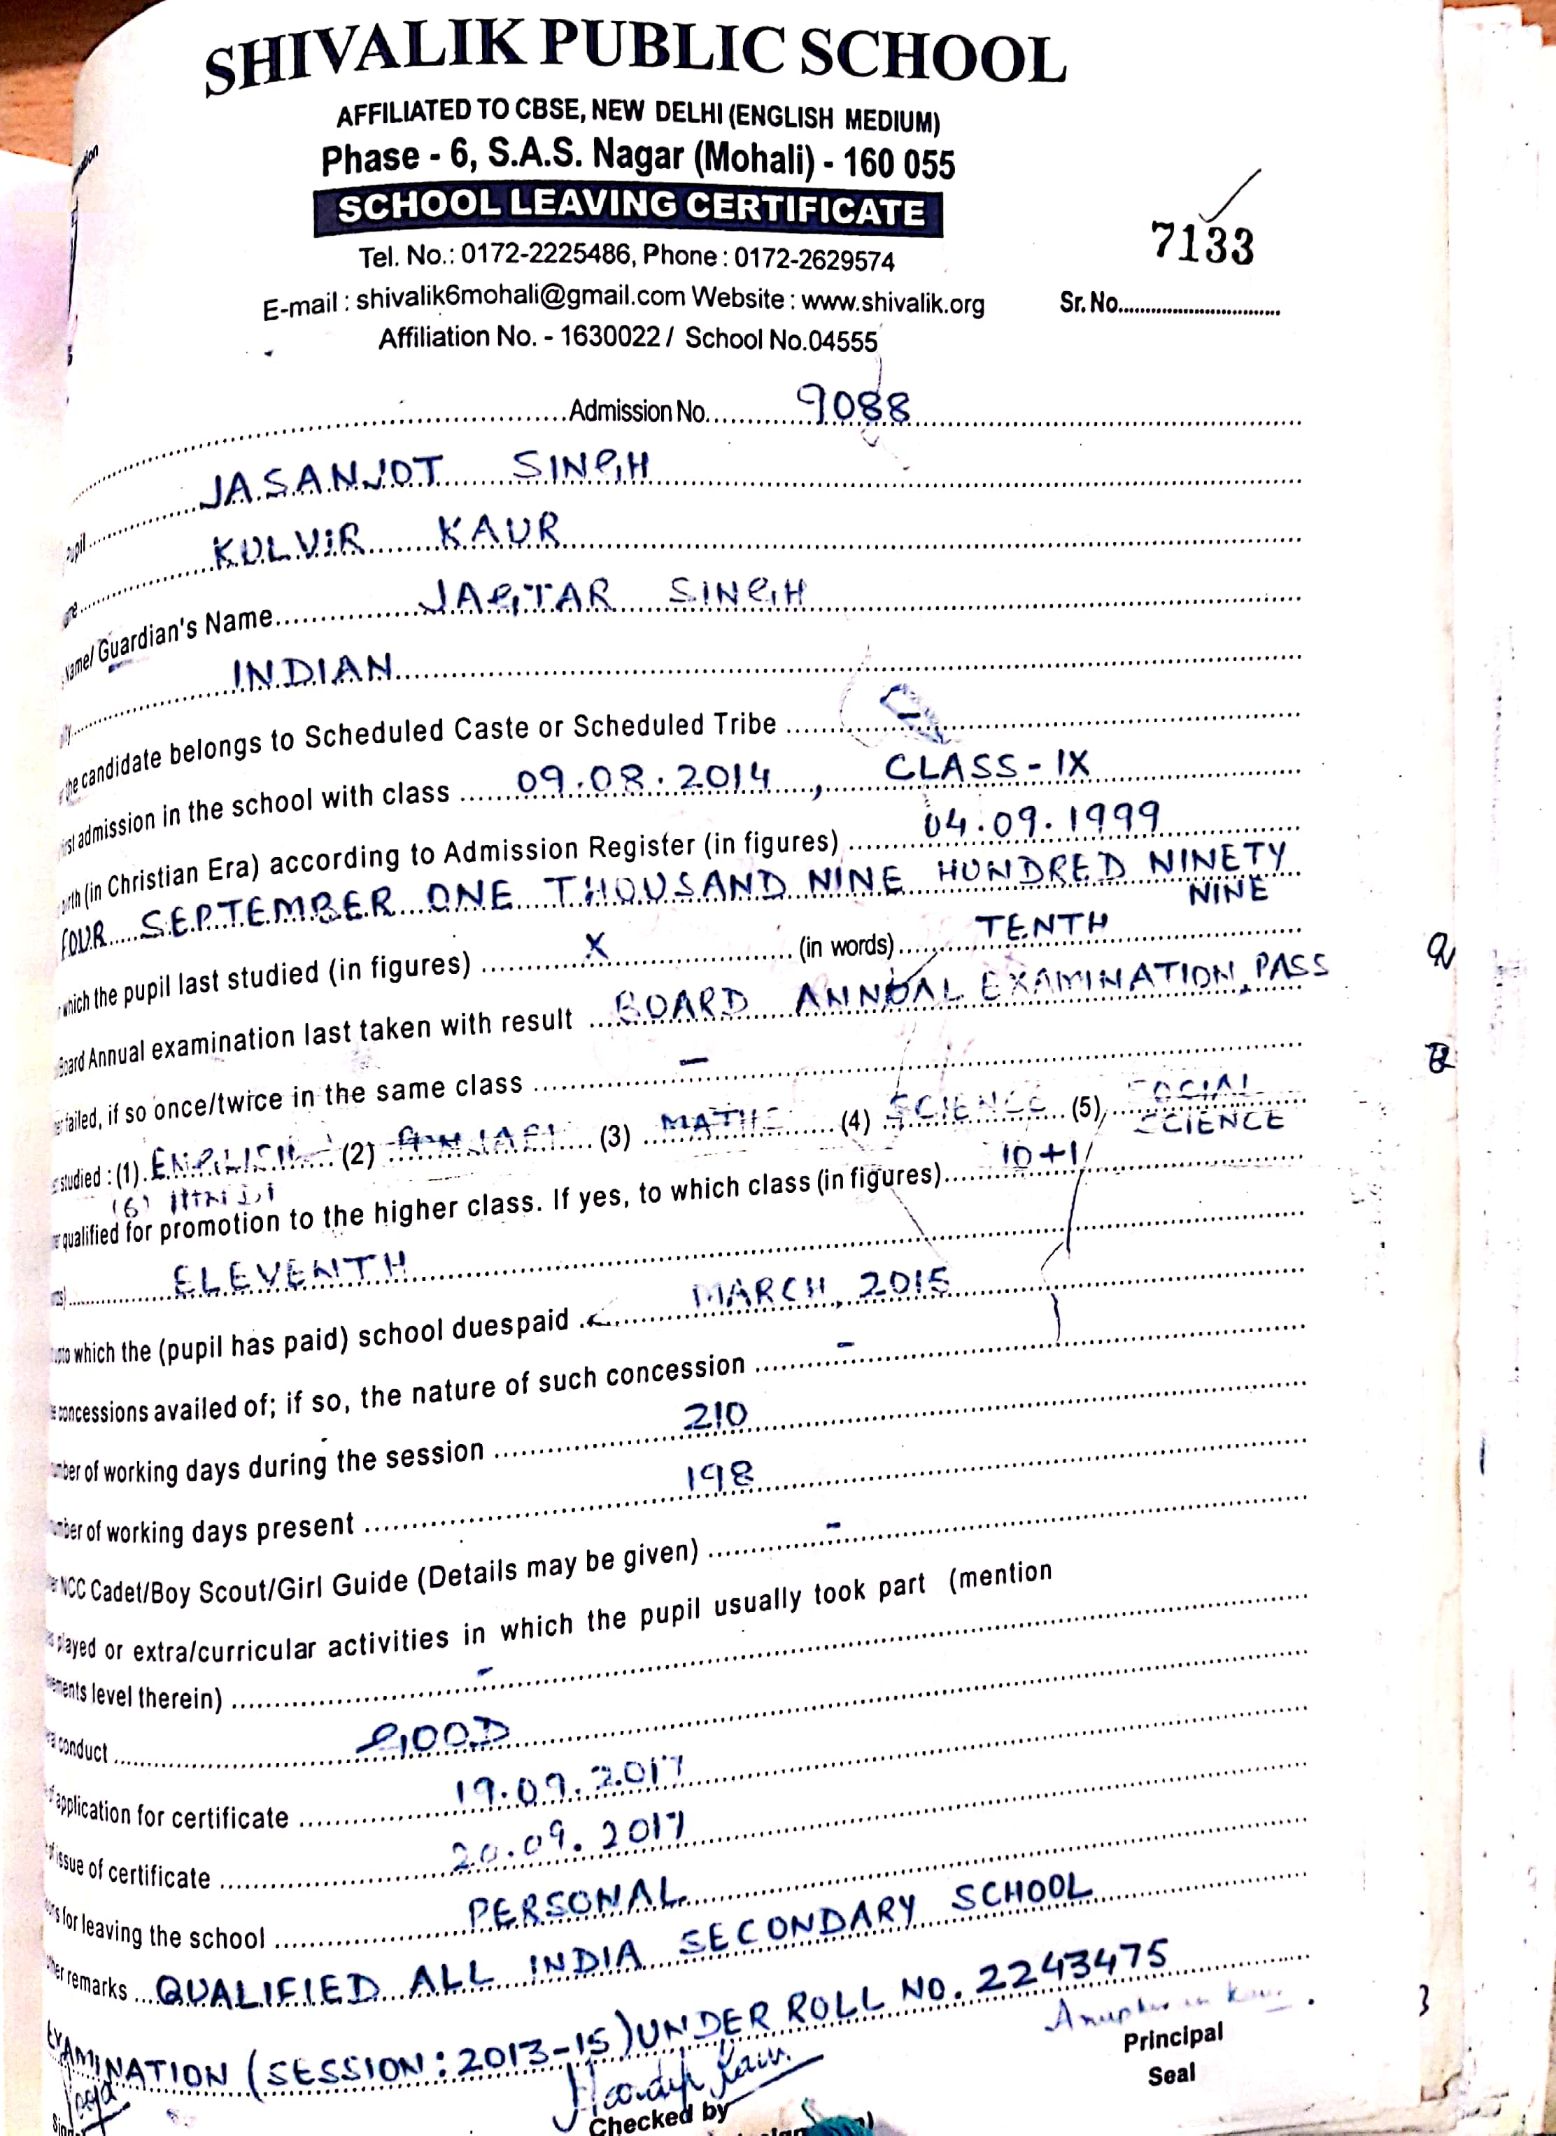 SHIVALIK PUBLIC SCHOOL
AFFILIATED TO CBSE, NEW DELHI (ENGLISH MEDIUM)
Phase - 6, S.A.S. Nagar (Mohali) - 160 055
SCHOOL LEAVING CERTIFICATE
7133
Tel. No.: 0172-2225486, Phone : 0172-2629574
E-mail : shivalik6mohali@gmail.com Website : www.shivalik.org Sr. No.
Affiliation No. - 1630022 / School No.04555
Admission No. 9088
pupil JASANJOT SINGH
KULVIR KAUR
Name/ Guardian's Name JAGTAR SINGH
INDIAN
the candidate belongs to Scheduled Caste or Scheduled Tribe -
admission in the school with class 09.08.2014, CLASS - IX
(in Christian Era) according to Admission Register (in figures) 04.09.1999
FOUR SEPTEMBER ONE THOUSAND NINE HUNDRED NINETY
NINE
which the pupil last studied (in figures) X (in words) TENTH
Board Annual examination last taken with result BOARD ANNUAL EXAMINATION, PASS
failed, if so once/twice in the same class -
studied : (1) ENGLISH (2) PUNJABI (3) MATHS (4) SCIENCE (5) SOCIAL
SCIENCE
(6) HINDI
qualified for promotion to the higher class. If yes, to which class (in figures) 10+1
ELEVENTH
to which the (pupil has paid) school duespaid MARCH, 2015
concessions availed of; if so, the nature of such concession -
of working days during the session 210
of working days present 198
NCC Cadet/Boy Scout/Girl Guide (Details may be given) -
played or extra/curricular activities in which the pupil usually took part (mention
level therein) -
conduct GOOD
application for certificate 19.09.2017
issue of certificate 20.09.2017
for leaving the school PERSONAL
remarks QUALIFIED ALL INDIA SECONDARY SCHOOL
EXAMINATION (SESSION : 2013-15) UNDER ROLL NO. 2243475
Principal
Seal
Checked by